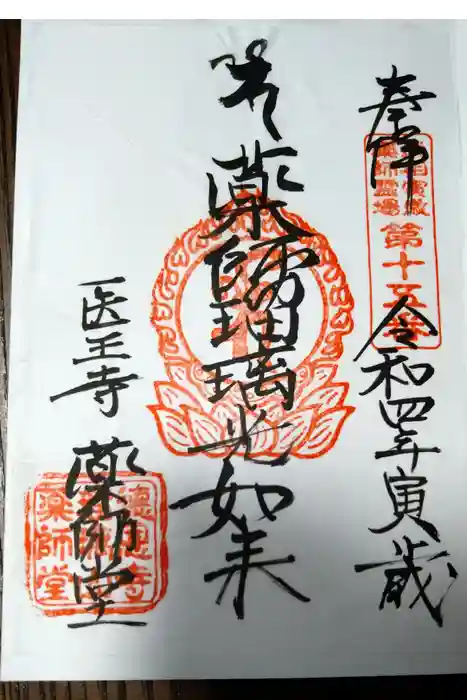 奉拝
武相寅歳
薬師霊場
第十五番
令和四年寅歳
薬師瑠璃光如来
医王寺 薬師堂
徳恩寺
薬師堂